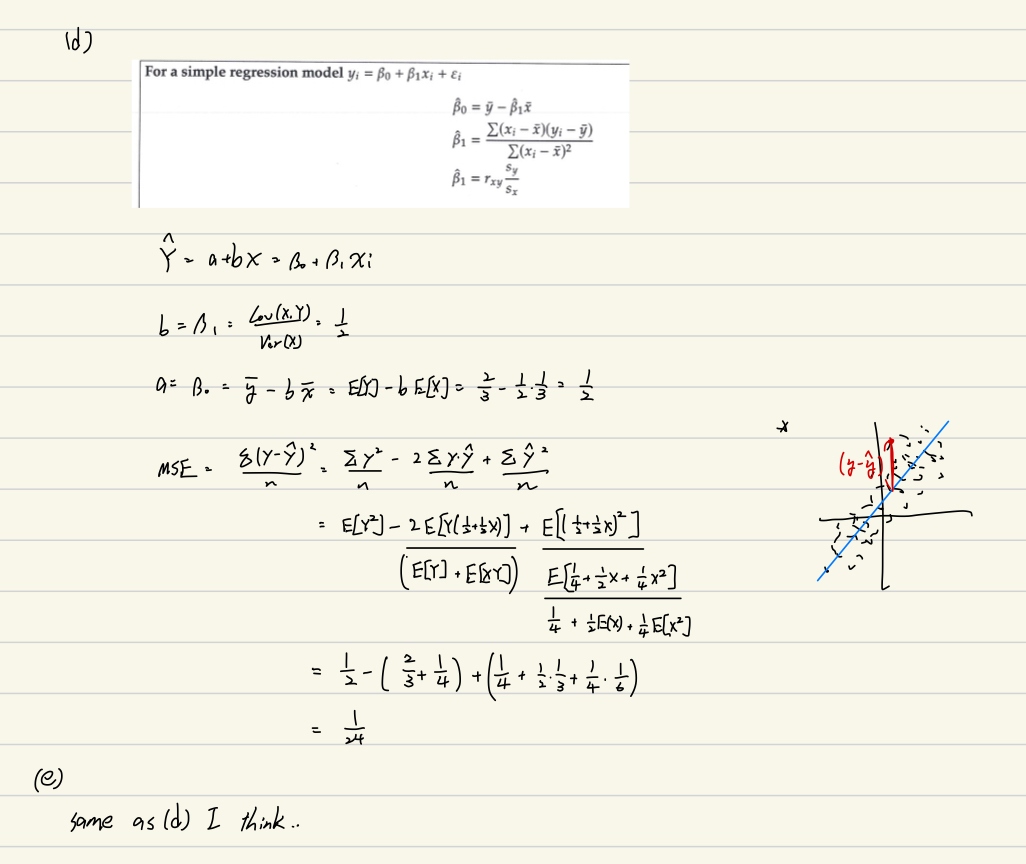 (d)
For a simple regression model yᵢ = β₀ + β₁xᵢ + εᵢ
β̂₀ = ȳ − β̂₁x̄
β̂₁ = ∑(xᵢ − x̄)(yᵢ − ȳ) / ∑(xᵢ − x̄)²
β̂₁ = rₓᵧ sᵧ/sₓ
Ŷ = a+bX = β₀ + β₁xi
b = β₁ = Cov(X,Y)/Var(X) = 1/2
a = β₀ = ȳ − bx̄ = E[Y] − bE[X] = 2/3 − 1/2·1/3 = 1/2
*
(y−ŷ)
MSE = Σ(Y−Ŷ)²/n = ΣY²/n − 2ΣY·Ŷ/n + ΣŶ²/n
= E[Y²] − 2E[Y(1/2+1/2X)] + E[(1/2+1/2X)²]
(E[Y] + E[XY]) E[1/4 + 1/2X + 1/4X²]
1/4 + 1/2E(X) + 1/4E[X²]
= 1/2 − (2/3 + 1/4) + (1/4 + 1/2·1/3 + 1/4·1/6)
= 1/24
(e)
same as (d) I think..